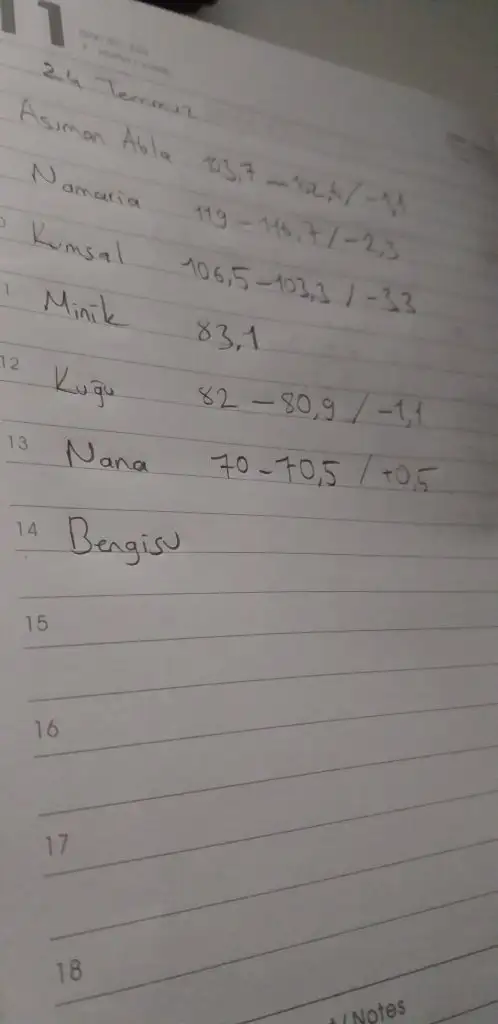 11
24 Temmuz
Asuman Abla 83,7 - 82,6 / -1,1
Namaria 119 - 116,7 / -2,3
Kumsal 106,5 - 103,3 / -3,3
Minik 83,1
12 Kuğu 82 - 80,9 / -1,1
13 Nana 70 - 70,5 / +0,5
14 Bengisu
15
16
17
18
/ Notes